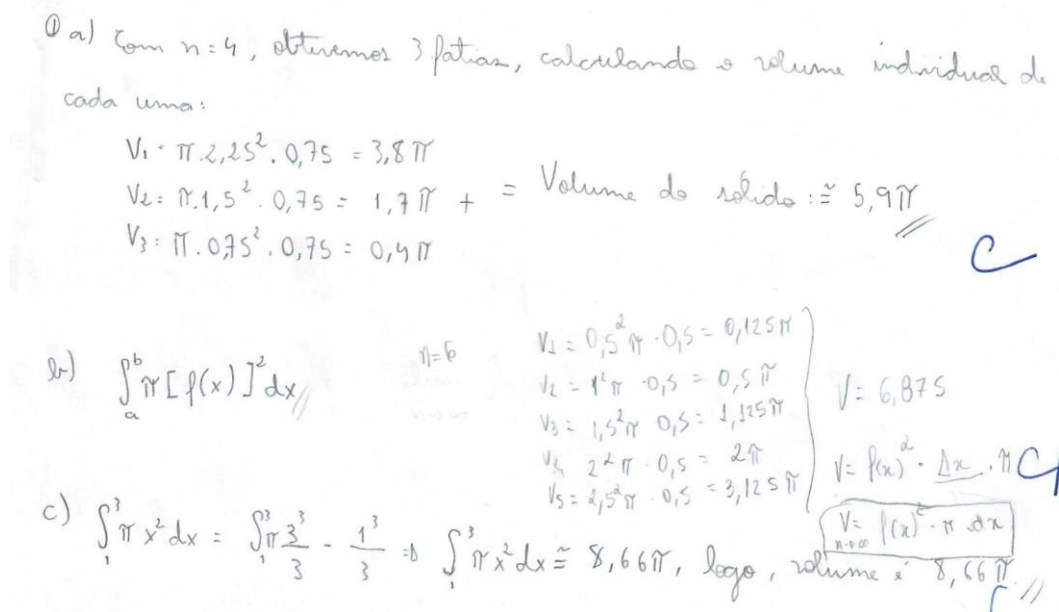 ① a) Com n=4, obtivemos 3 fatias, calculando o volume individual de
cada uma:
V₁ = π.2,25².0,75 = 3,8π
V₂ = π.1,5².0,75 = 1,7π + = Volume do sólido: ≅ 5,9π
V₃ = π.0,75².0,75 = 0,4π
C
b) ∫ₐᵇ π[f(x)]²dx
n=6
V₁ = 0,5²π.0,5 = 0,125π
V₂ = 1²π.0,5 = 0,5π
V₃ = 1,5²π 0,5 = 1,125π
V₄ 2²π.0,5 = 2π
V₅ = 2,5²π.0,5 = 3,125π
V = 6,875
V = f(x)².Δx.π
C
V = f(x)².π.dx
n→∞
c) ∫₁³ π x²dx = ∫₁³ π 3³/3 - 1³/3 ⇒ ∫₁³ π x²dx ≅ 8,66π, logo, volume é 8,66π.